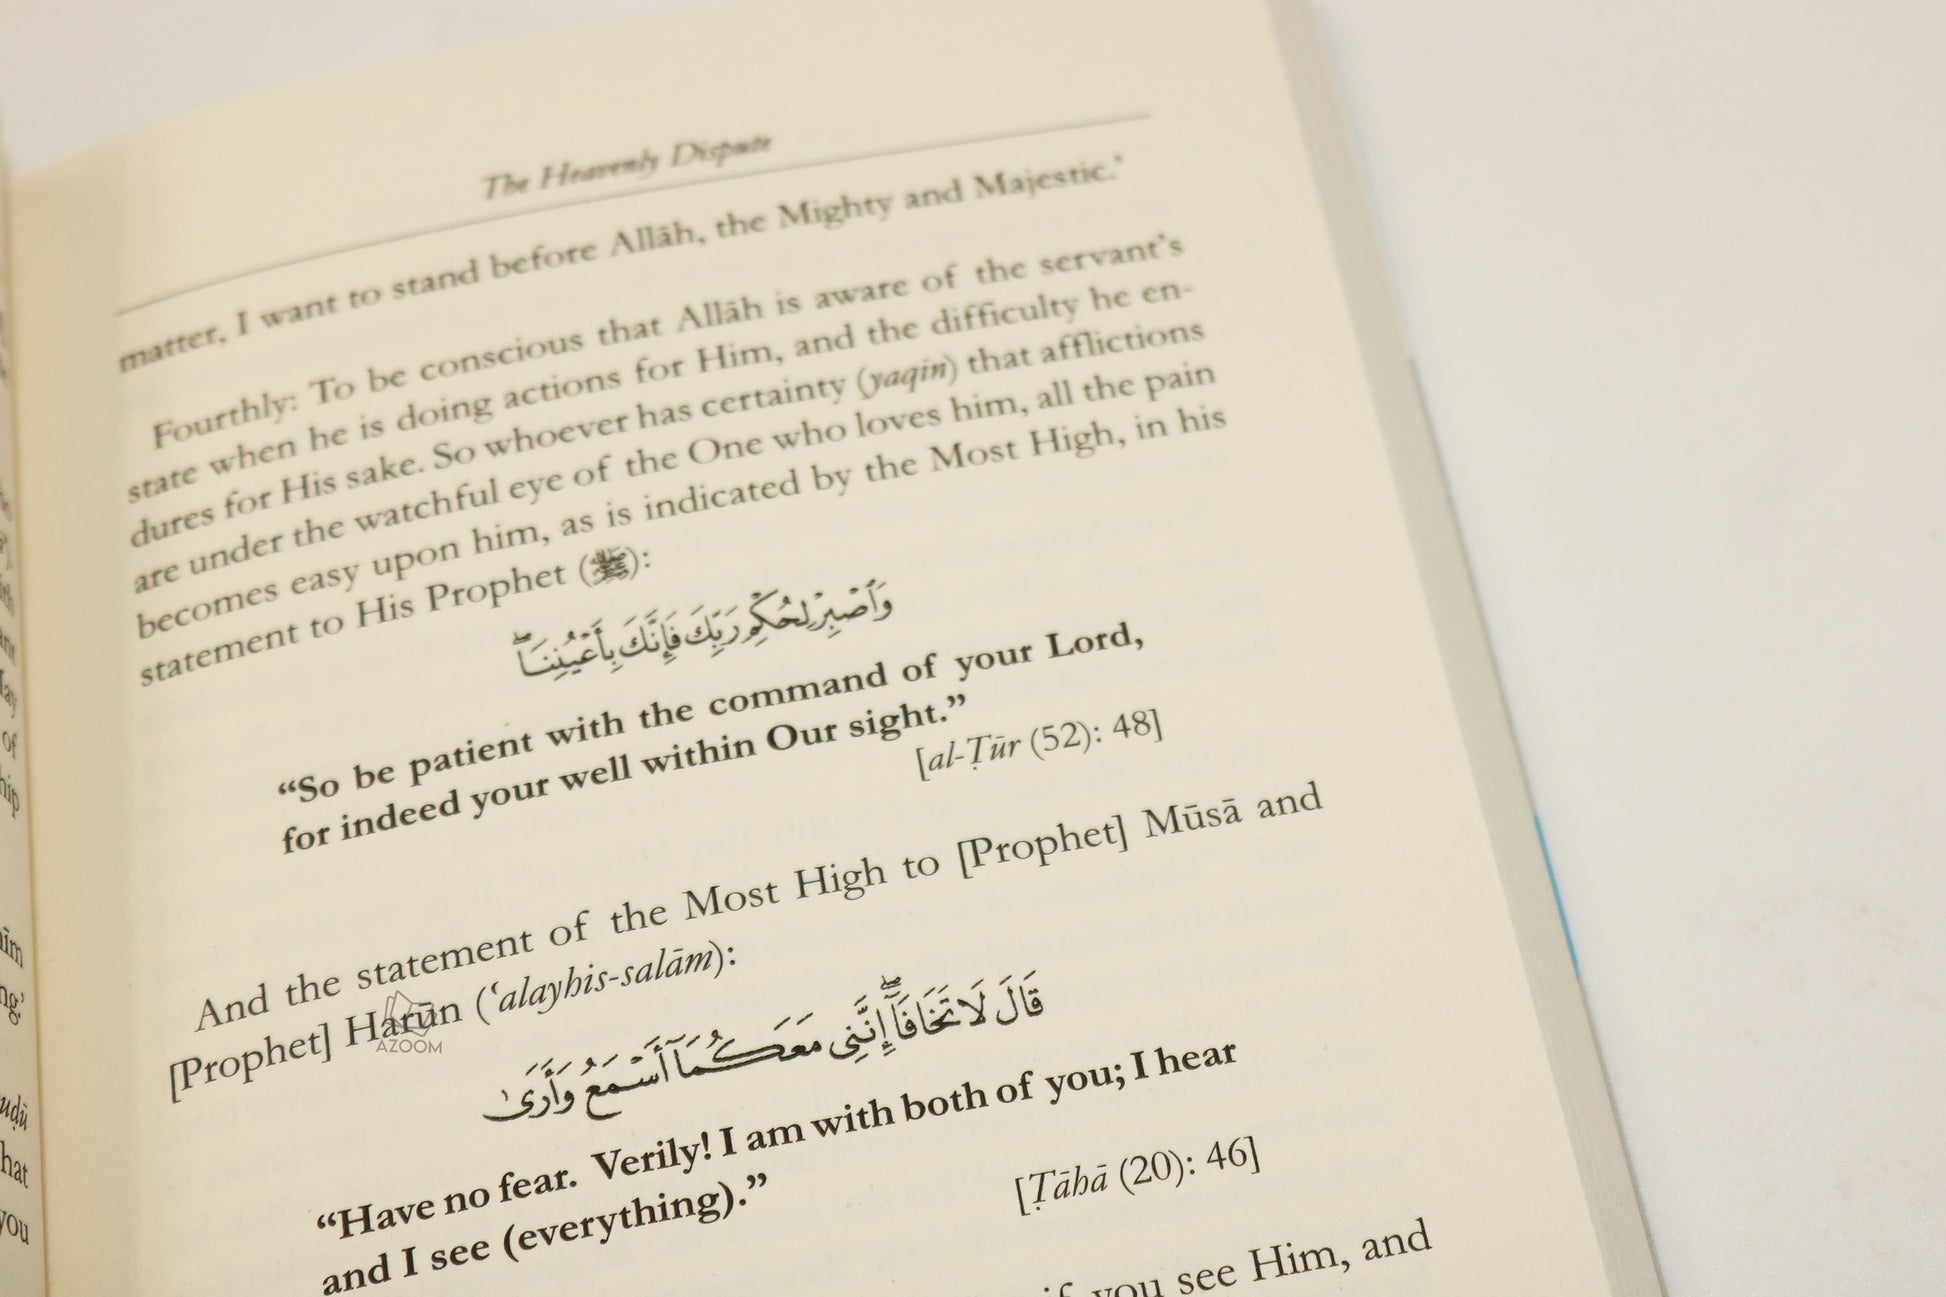 The Heavenly Dispute
matter, I want to stand before Allāh, the Mighty and Majestic.'
Fourthly: To be conscious that Allāh is aware of the servant's
state when he is doing actions for Him, and the difficulty he en-
dures for His sake. So whoever has certainty (yaqīn) that afflictions
are under the watchful eye of the One who loves him, all the pain
becomes easy upon him, as is indicated by the Most High, in his
statement to His Prophet (ﷺ):
وَٱصْبِرْ لِحُكْمِ رَبِّكَ فَإِنَّكَ بِأَعْيُنِنَا ۖ
“So be patient with the command of your Lord,
for indeed your well within Our sight.”
[al-Ṭūr (52): 48]
And the statement of the Most High to [Prophet] Mūsā and
[Prophet] Harūn (‘alayhis-salām):
قَالَ لَا تَخَافَآ ۖ إِنَّنِى مَعَكُمَآ أَسْمَعُ وَأَرَىٰ
“Have no fear. Verily! I am with both of you; I hear
and I see (everything).”
[Ṭāhā (20): 46]
if you see Him, and
AZOOM
of
hip
uḍū
hat
you